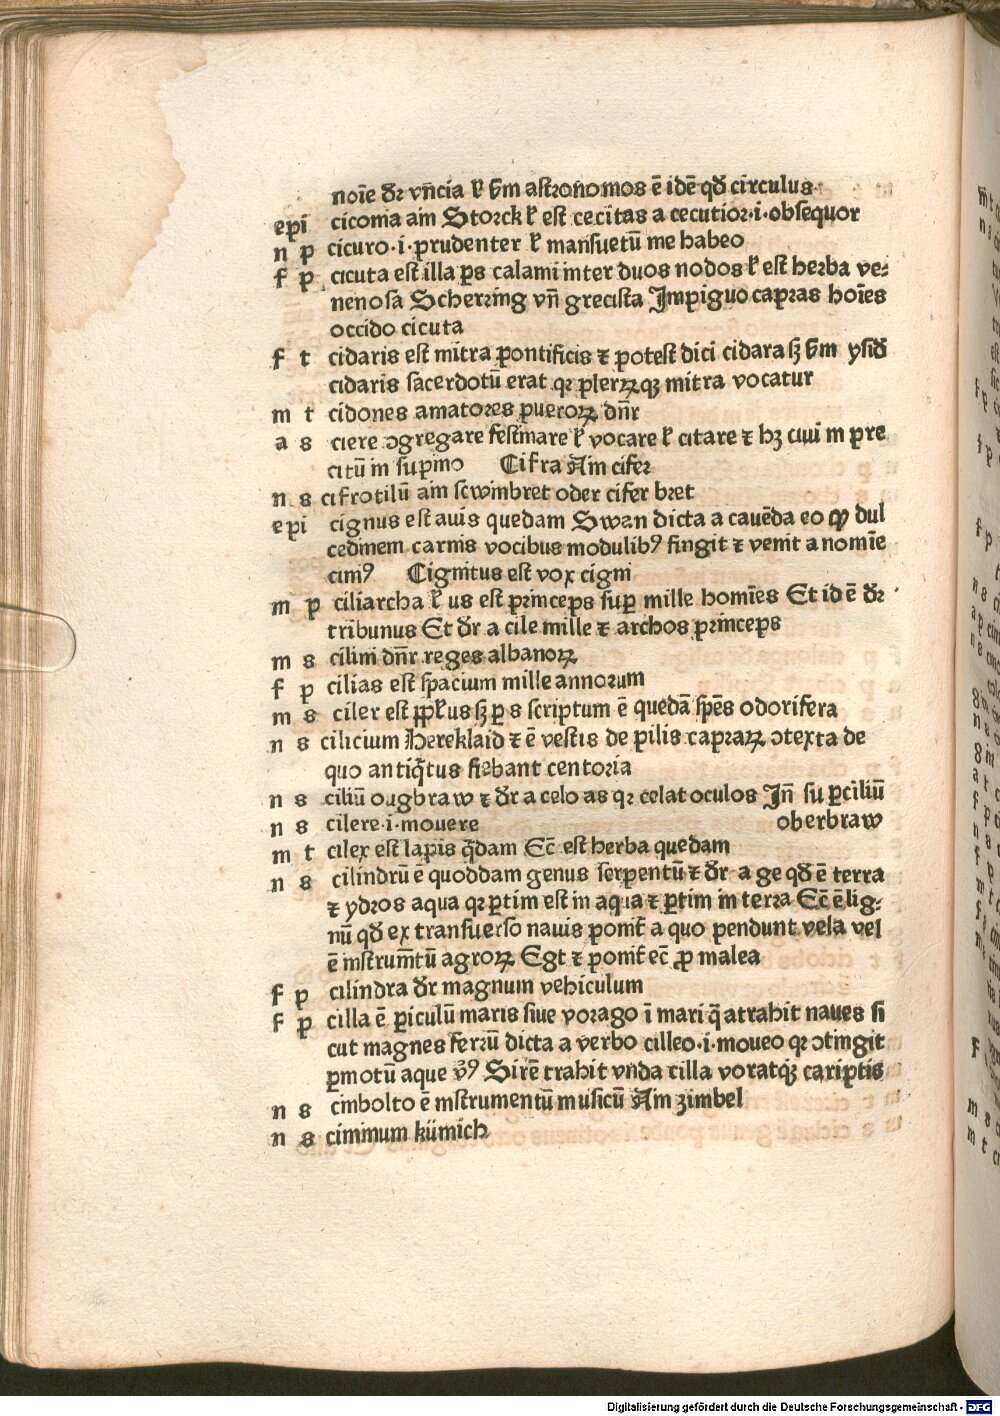 noīe dr vn̄cia ꝉ ẜm astronomos ē idē qd circulus
epi cicoma am Storck ꝉ est cecitas a cecutior·i·obsequor
n p cicuro·i·prudenter ꝉ mansuetū me habeo
f p cicuta est illa ꝑs calami inter duos nodos ꝉ est herba ve⸗
nenosa Scherring vn̄ grecista Impiguo capras hoīes
occido cicuta
f t cidaris est mitra pontificis ⁊ potest dici cidara sꝫ ẜm ysid
cidaris sacerdotū erat qr pleræqꝫ mitra vocatur
m t cidones amatores pueroꝝ dn̄r
a s ciere ɔgregare festinare ꝉ vocare ꝉ citare ⁊ hꝫ ciui in pre
citū in supino Cifra Am cifer
n s cifrotilū am scwinbret oder cifer bret
epi cignus est auis quedam Swan dicta a cauēda eo ꝙ dul
cedinem carnis vocibus modulibꝰ fingit ⁊ venit a nomīe
cimꝰ Cignitus est vox cigni
m p ciliarcha ꝉ us est princeps suꝑ mille homīes Et id ē dr
tribunus Et dr a cile mille ⁊ archos princeps
m s cilini dn̄r reges albanoꝝ
f p cilias est spacium mille annorum
m s ciler est ꝓpꝉus sꝫ ꝑs scriptum ē quedā spēs odorifera
n s cilicium Hereklaid ⁊ ē vestis de pilis capraꝝ ɔtexta de
quo antiq̄tus fiebant centoria
n s ciliū ougbraw ⁊ dr a celo as qr celat oculos In̄ suꝑciliū
n s cilere·i·mouere oberbraw
m t cilex est lapis q̄dam Ec̄ est herba quedam
n s cilindrū ē quoddam genus serpentū ⁊ dr a ge qd ē terra
⁊ ydros aqua qr ꝑtim est in aqua ⁊ ꝑtim in terra Ec̄ ē lig⸗
nū qd ex transuerso nauis ponit̄ a quo pendunt vela vel
ē instrum̄tū agroꝝ Egt ⁊ ponit̄ ec̄ ꝓ malea
f p cilindra dr magnum vehiculum
f p cilla ē ꝑiculū maris siue vorago ī mari q̄ atrahit naues si
cut magnes ferrū dicta a verbo cilleo·i·moueo qr ɔtingit
ꝑmotū aque vꝰ Sirē trahit vnda cilla voratqꝫ cariptis
n s cimbolto ē instrumentū musicū Am zimbel
n s ciminum kümich
Digitalisierung gefördert durch die Deutsche Forschungsgemeinschaft - DFG